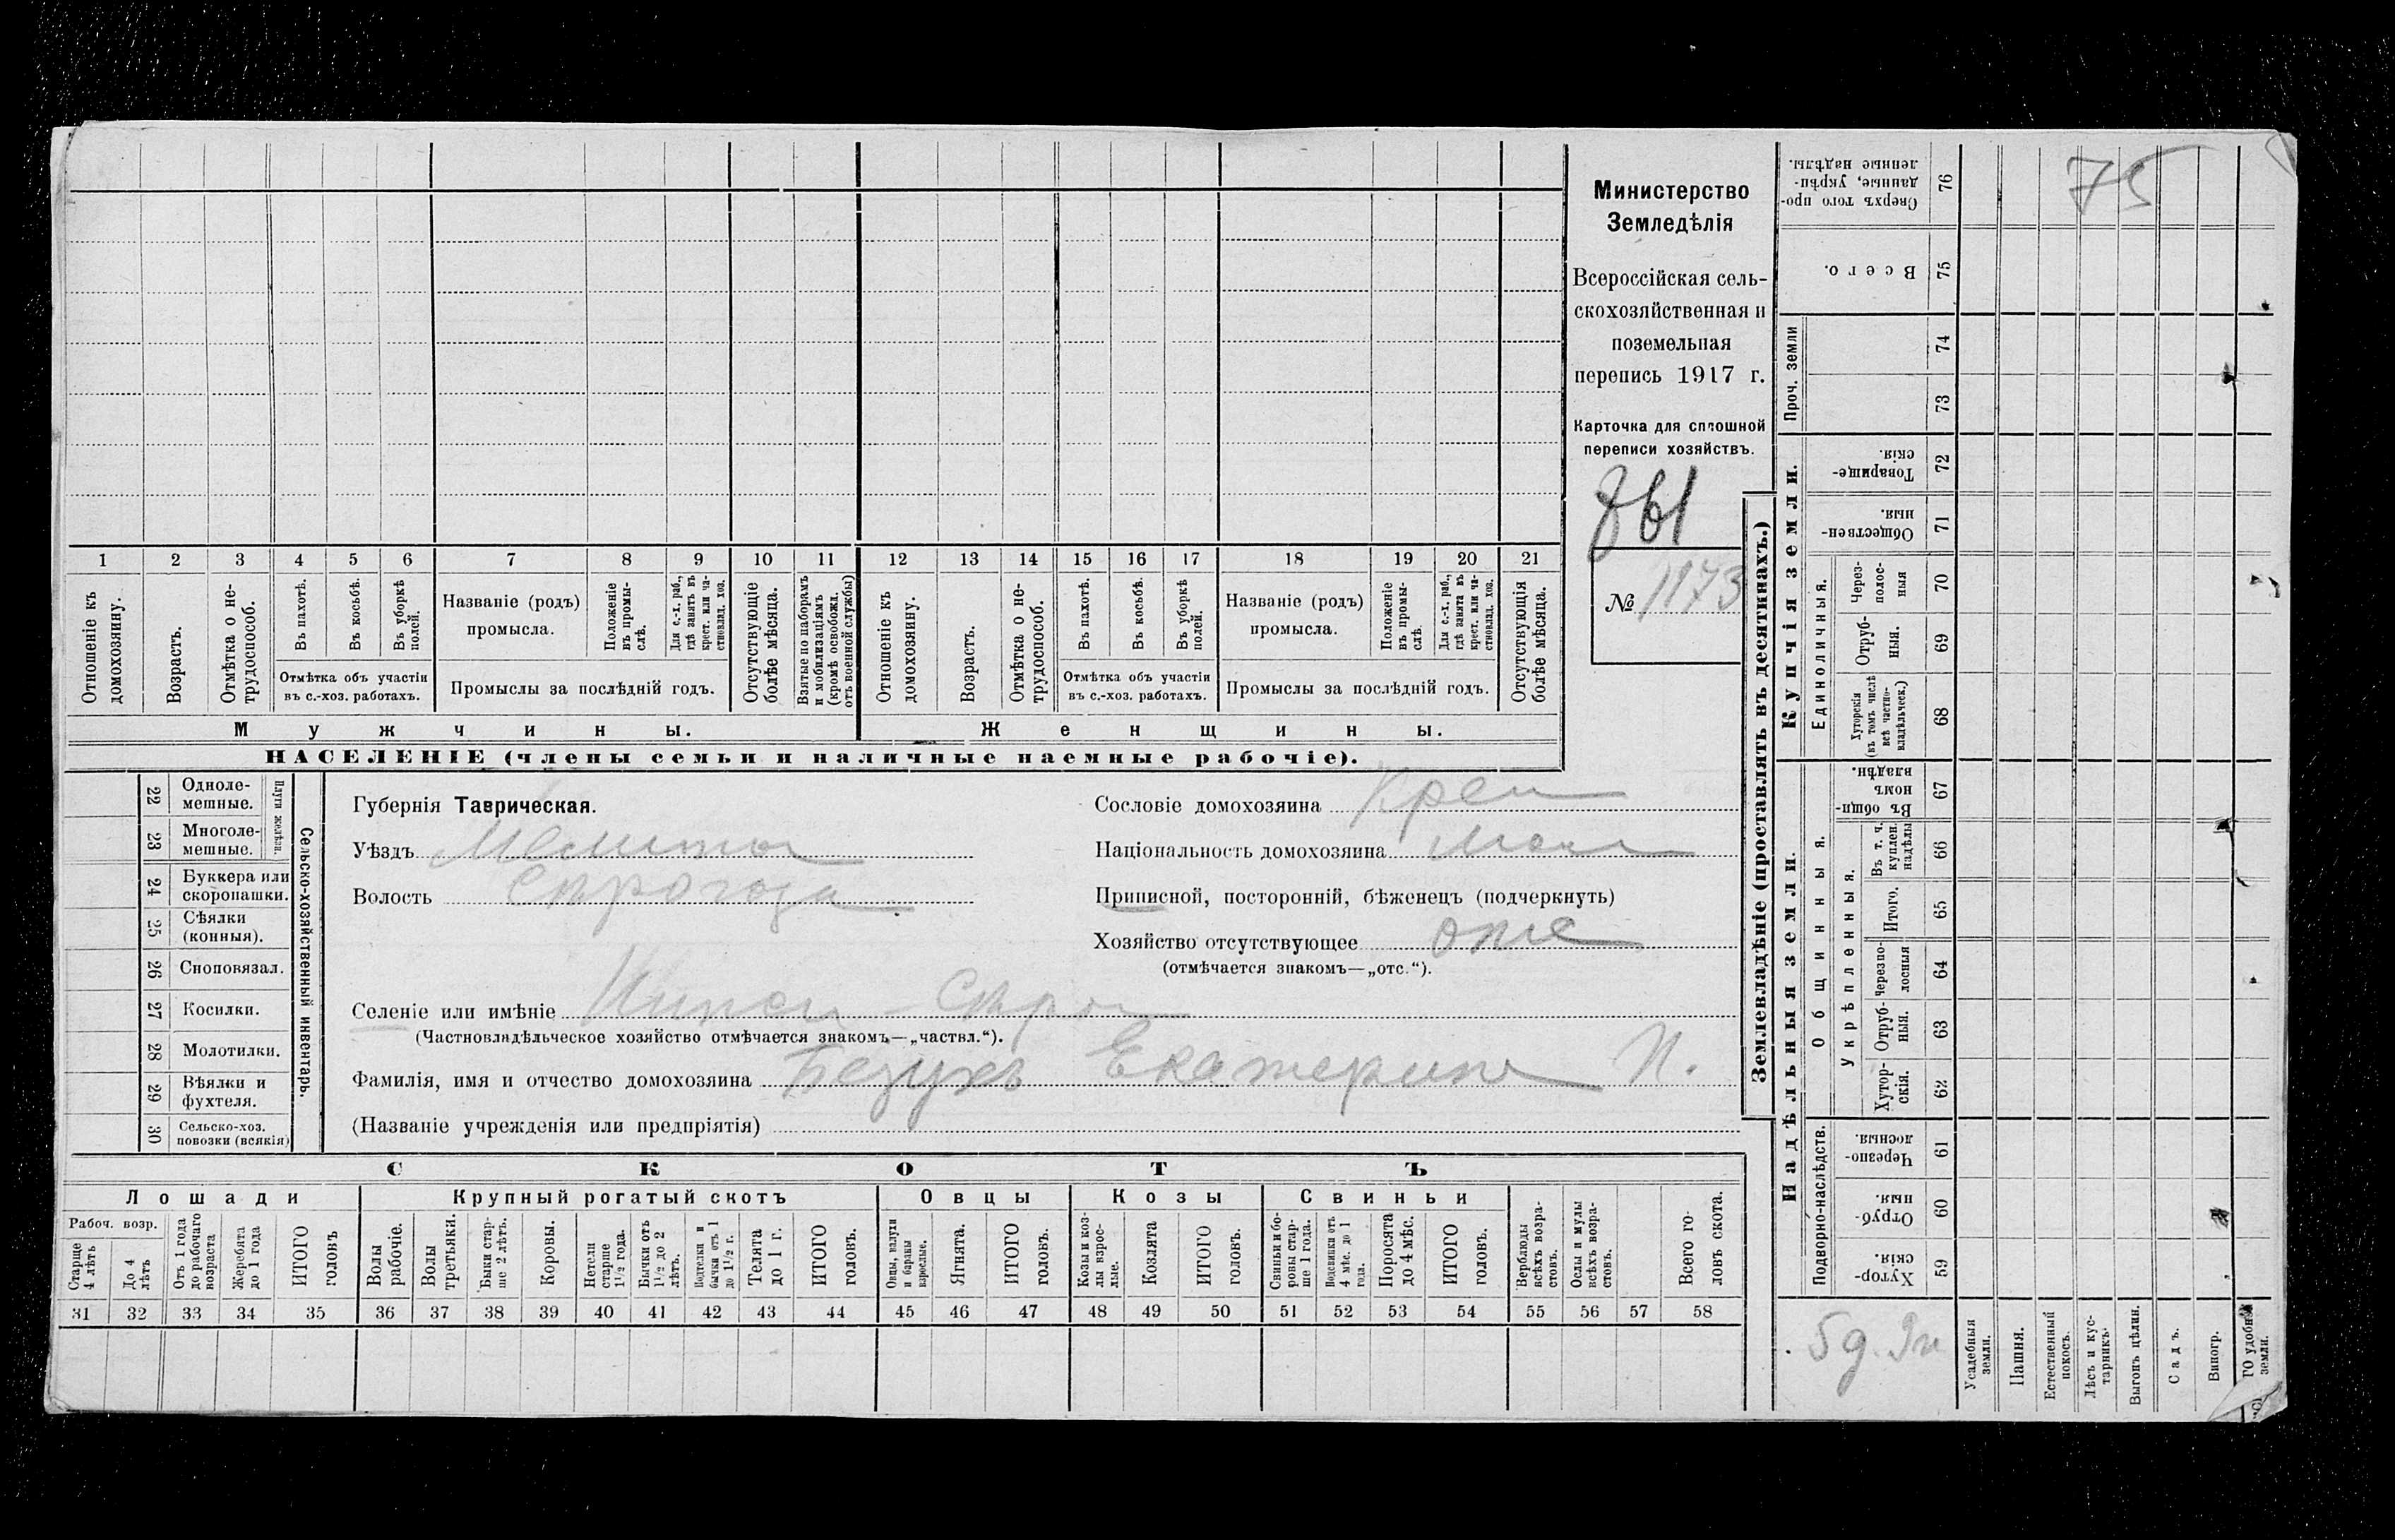 75
Министерство
Земледѣлія
Всероссійская сель-
скохозяйственная и
поземельная
перепись 1917 г.
Карточка для сплошной
переписи хозяйствъ.
№ 1173
1 2 3 4 5 6 7 8 9 10 11 12 13 14 15 16 17 18 19 20 21
Отношеніе къ домохозяину.
Возрастъ.
Отмѣтка о не-трудоспособ.
Въ пахотѣ.
Въ косьбѣ.
Въ уборкѣ полей.
Отмѣтка объ участіи
въ с.-хоз. работахъ.
Названіе (родъ)
промысла.
Положеніе въ промы-слѣ.
Для с.-х. раб., гдѣ занятъ въ крест. или ча-стновлад. хоз.
Промыслы за послѣдній годъ.
Отсутствующіе болѣе мѣсяца.
Взятые по наборамъ и мобилизаціямъ (кромѣ освобожд. отъ военной службы)
Отношеніе къ домохозяину.
Возрастъ.
Отмѣтка о не-трудоспособ.
Въ пахотѣ.
Въ косьбѣ.
Въ уборкѣ полей.
Отмѣтка объ участіи
въ с.-хоз. работахъ.
Названіе (родъ)
промысла.
Положеніе въ промы-слѣ.
Для с.-х. раб., гдѣ занята въ крест. или ча-стновлад. хоз.
Промыслы за послѣдній годъ.
Отсутствующія болѣе мѣсяца.
Мужчины. Женщины.
НАСЕЛЕНІЕ (члены семьи и наличные наемные рабочіе).
Сельско-хозяйственный инвентарь.
Плуги желѣзн.
22 Одноле-мешные.
23 Многоле-мешные.
24 Буккера или скоропашки.
25 Сѣялки (конныя).
26 Сноповязал.
27 Косилки.
28 Молотилки.
29 Вѣялки и фухтеля.
30 Сельско-хоз. повозки (всякія)
Губернія Таврическая.
Уѣздъ Мелитоп
Волость
Сословіе домохозяина Крест
Національность домохозяина
Приписной, посторонній, бѣженецъ (подчеркнуть)
Хозяйство отсутствующее отс
(отмѣчается знакомъ—„отс.“).
Селеніе или имѣніе
(Частновладѣльческое хозяйство отмѣчается знакомъ—„частвл.“).
Фамилія, имя и отчество домохозяина Безухъ Екатерина И.
(Названіе учрежденія или предпріятія)
СКОТЪ
Лошади Крупный рогатый скотъ Овцы Козы Свиньи
Рабоч. возр.
Старше 4 лѣтъ
До 4 лѣтъ
Отъ 1 года до рабочаго возраста
Жеребята до 1 года
ИТОГО головъ
Волы рабочіе.
Волы третьяки.
Быки стар-ше 2 лѣтъ.
Коровы.
Нетели старше 1½ года.
Бычки отъ 1½ до 2 лѣтъ.
Подтелки и бычки отъ 1 до 1½ г.
Телята до 1 г.
ИТОГО головъ.
Овцы, валухи и бараны взрослые.
Ягнята.
ИТОГО головъ.
Козы и коз-лы взрос-лые.
Козлята
ИТОГО головъ.
Свиньи и бо-ровы стар-ше 1 года.
Подсвинки отъ 4 мѣс. до 1 года.
Поросята до 4 мѣс.
ИТОГО головъ.
Верблюды всѣхъ возра-стовъ.
Ослы и мулы всѣхъ возра-стовъ.
Всего го-ловъ скота.
31 32 33 34 35 36 37 38 39 40 41 42 43 44 45 46 47 48 49 50 51 52 53 54 55 56 57 58
Землевладѣніе (проставлять въ десятинахъ.)
Надѣльныя земли.
Подворно-наслѣдств.
59 Хутор-скія.
60 Отруб-ныя.
61 Черезпо-лосныя.
Общинныя.
Укрѣпленныя.
62 Хутор-скія.
63 Отруб-ныя.
64 Черезпо-лосныя
65 Итого.
66 Въ т. ч. куплен. надѣлы
67 Въ общин-номъ владѣн.
Купчія земли.
Единоличныя.
68 Хуторскія (въ томъ числѣ всѣ частно-владѣльческ.)
69 Отруб-ныя.
70 Через-полос-ныя
71 Обществен-ныя.
72 Товарище-скія.
Проч. земли
73
74
75 Всего.
76 Сверхъ того про-данные, укрѣп-ленные надѣлы.
Усадебныя земли.
Пашня.
Естественный покосъ.
Лѣсъ и кус-тарникъ.
Выгонъ цѣлин.
Садъ.
Виногр.